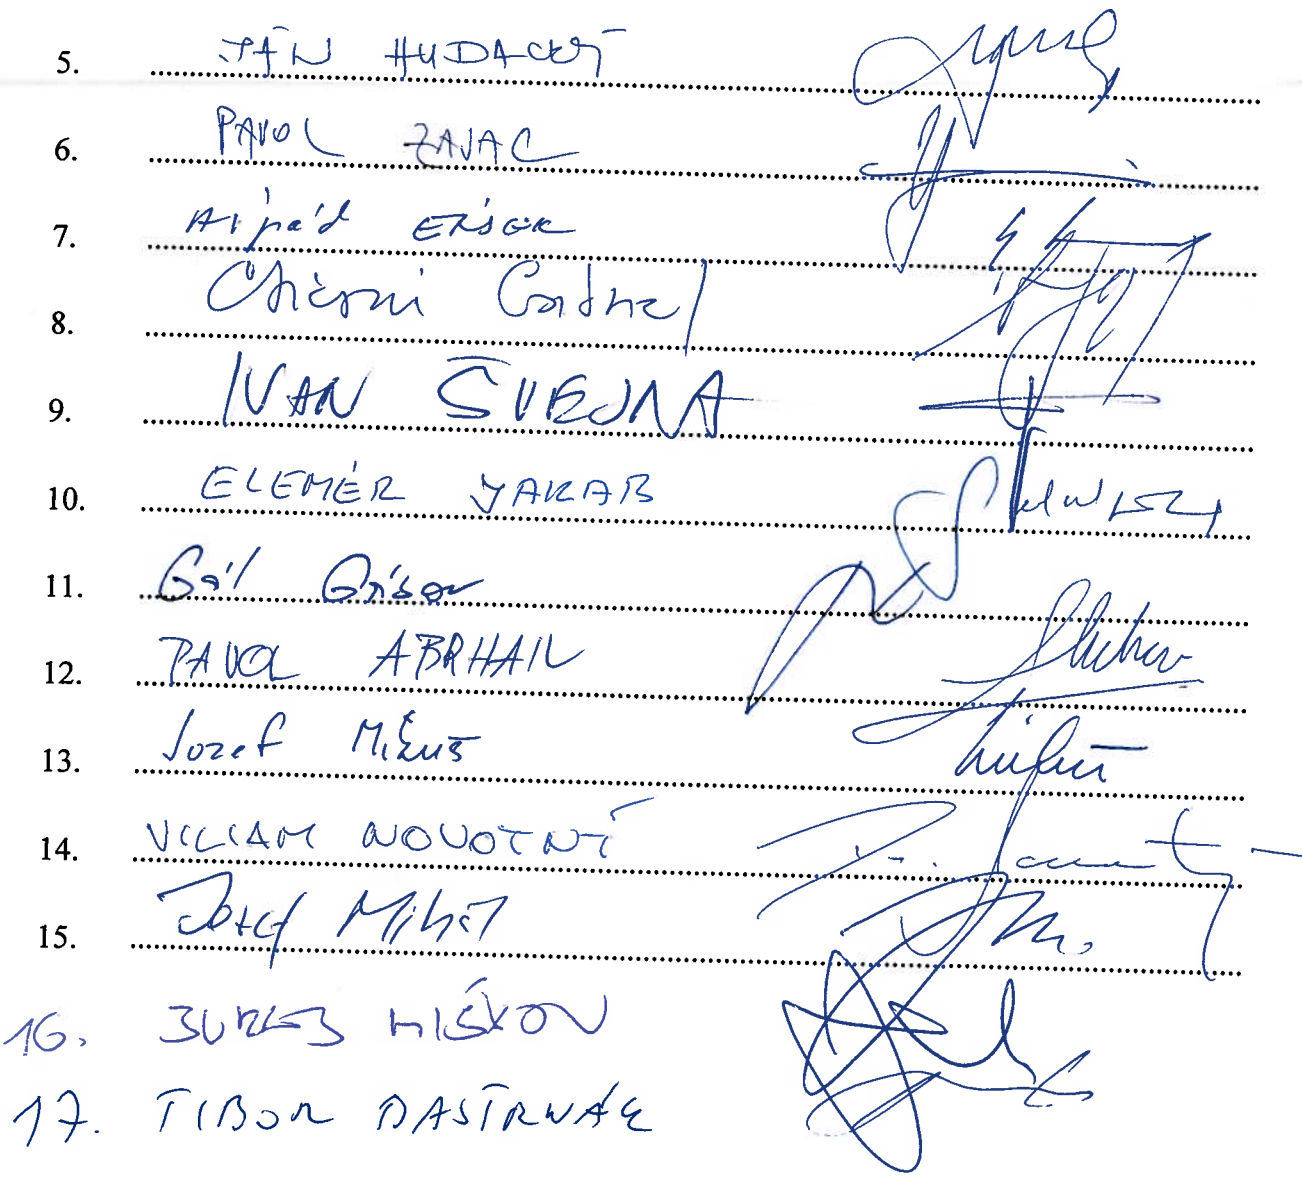 5. JÁN HUDACKÝ
6. PAVOL ZAJAC
7. Árpád ÉRSEK
8. Gábriel
9. IVAN ŠVEJNA
10. ELEMÉR JAKAB
11. Gál Gábor
12. PAVOL ABRHAN
13. Jozef Mikuš
14. VILIAM NOVOTNÝ
15. Jozef Mihál
16. JURAJ MIŠKOV
17. TIBOR BASTRNÁK